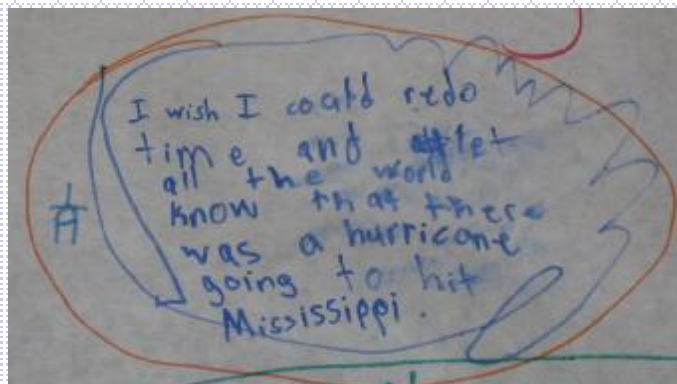 I wish I could redo
time and let
all the world
know that there
was a hurricane
going to hit
Mississippi.